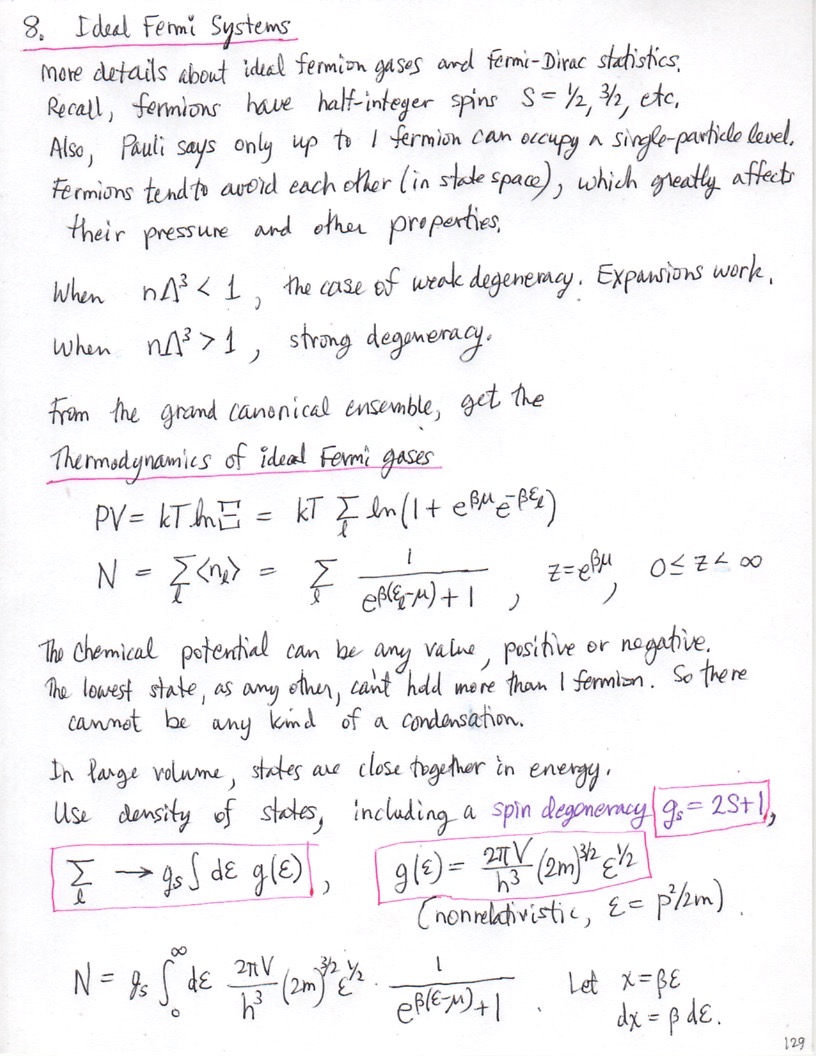 8. Ideal Fermi Systems
More details about ideal fermion gases and Fermi-Dirac statistics.
Recall, fermions have half-integer spins S = 1/2, 3/2, etc.
Also, Pauli says only up to 1 fermion can occupy a single-particle level.
Fermions tend to avoid each other (in state space), which greatly affects
their pressure and other properties.
When nΛ³ < 1, the case of weak degeneracy. Expansions work.
When nΛ³ > 1, strong degeneracy.
From the grand canonical ensemble, get the
Thermodynamics of ideal Fermi gases
PV = kT ln Ξ = kT Σ_l ln(1 + e^{βμ} e^{-βε_l})
N = Σ_l <n_l> = Σ_l 1/(e^{β(ε_l-μ)} + 1), z = e^{βμ}, 0 ≤ z < ∞
The chemical potential can be any value, positive or negative.
The lowest state, as any other, can't hold more than 1 fermion. So there
cannot be any kind of a condensation.
In large volume, states are close together in energy.
Use density of states, including a spin degeneracy g_s = 2S+1,
Σ_l → g_s ∫ dε g(ε), g(ε) = 2πV/h³ (2m)^{3/2} ε^{1/2}
(nonrelativistic, ε = p²/2m).
N = g_s ∫_0^∞ dε 2πV/h³ (2m)^{3/2} ε^{1/2} · 1/(e^{β(ε-μ)} + 1). Let x = βε
dx = β dε.
129